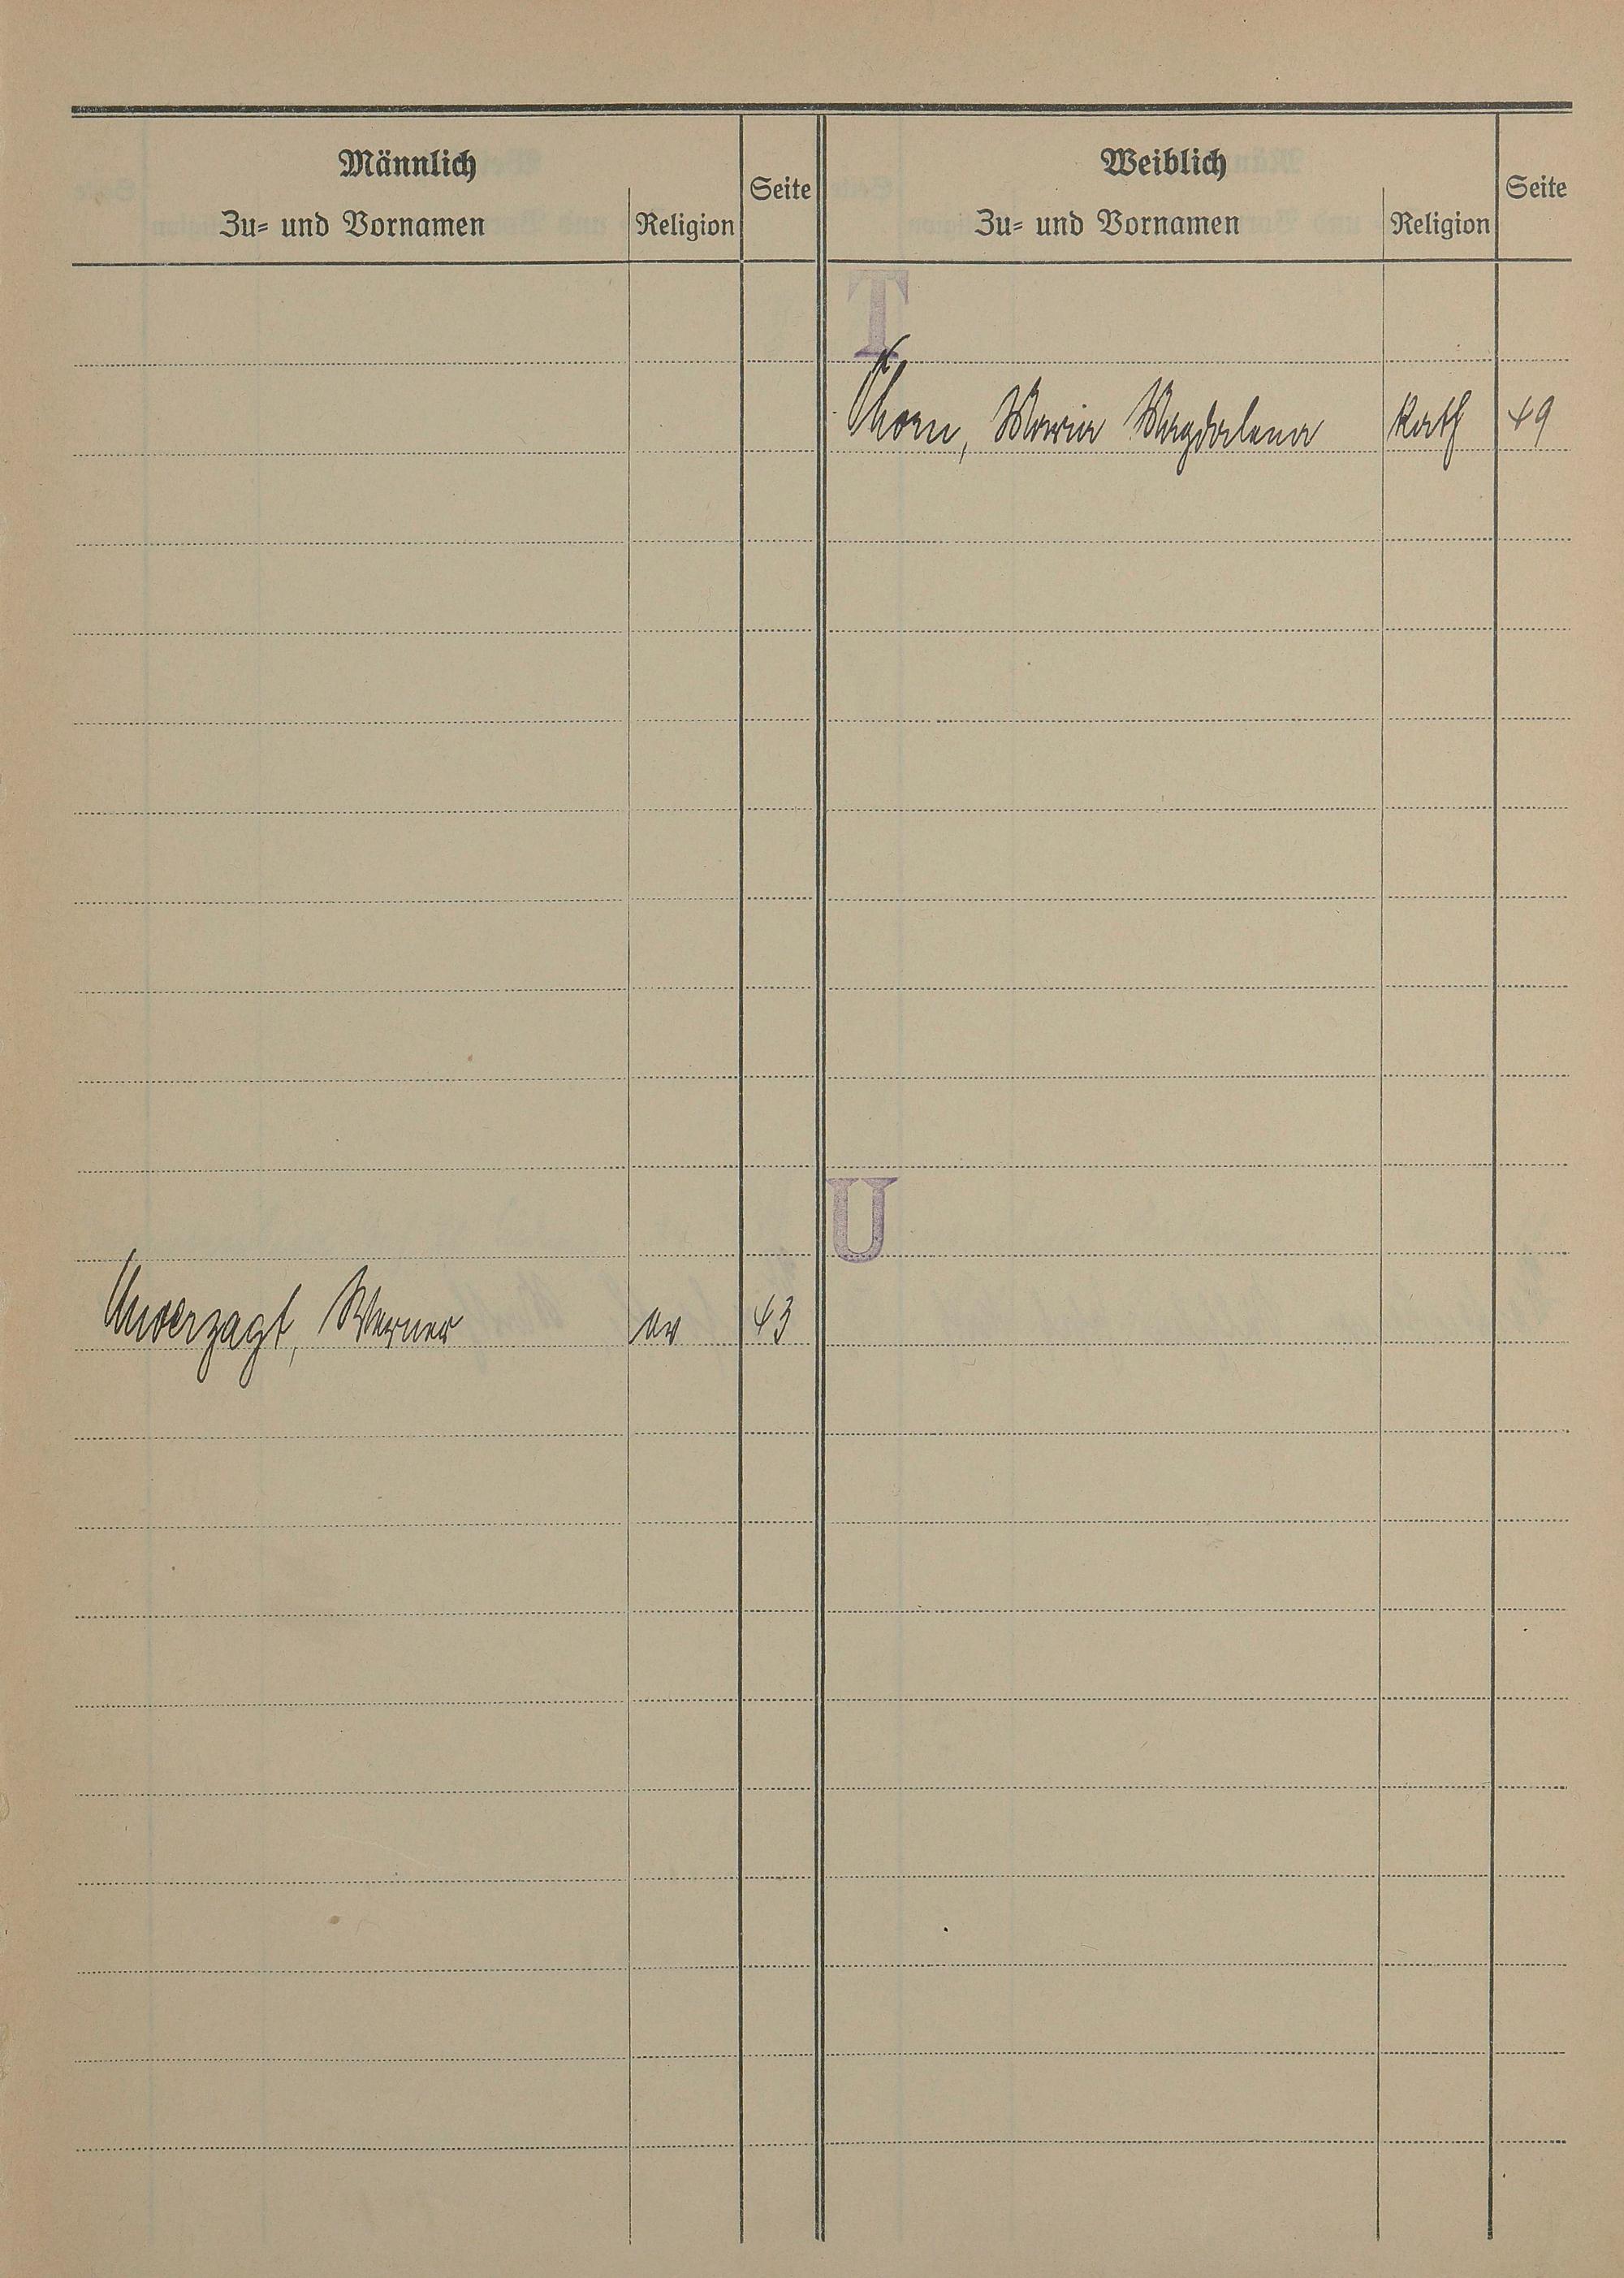 Männlich
Weiblich
Seite
Seite
Zu= und Vornamen
Religion
Zu= und Vornamen
Religion
T
Thorn, Maria Magdalena Kath 49
U
Unverzagt, Werner ev 43